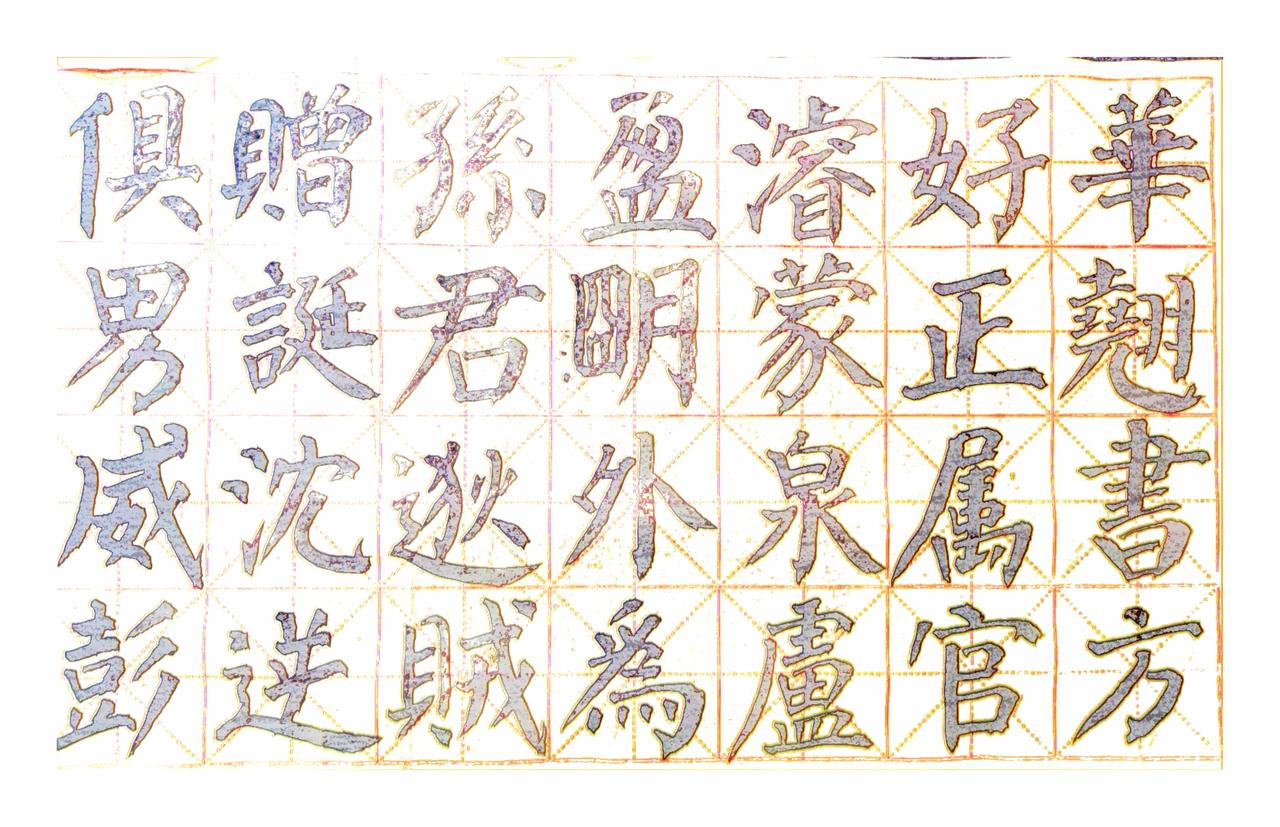 華翹書方
好正属官
濬蒙泉盧
盈明外為
孫君逖賊
贈誕沈
俱男威彭